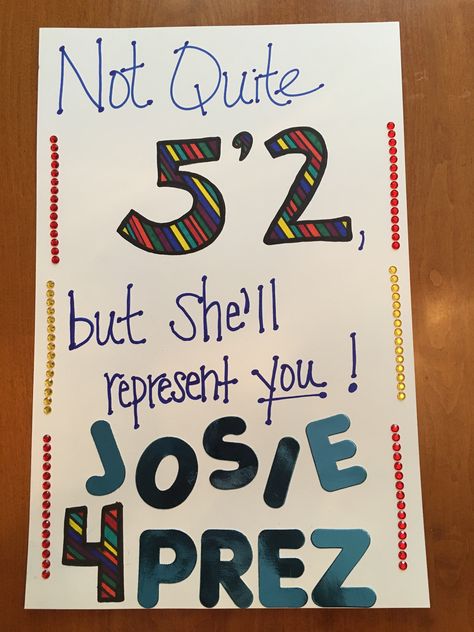 Not Quite
5'2,
but she'll
represent you!
JOSIE
4 PREZ